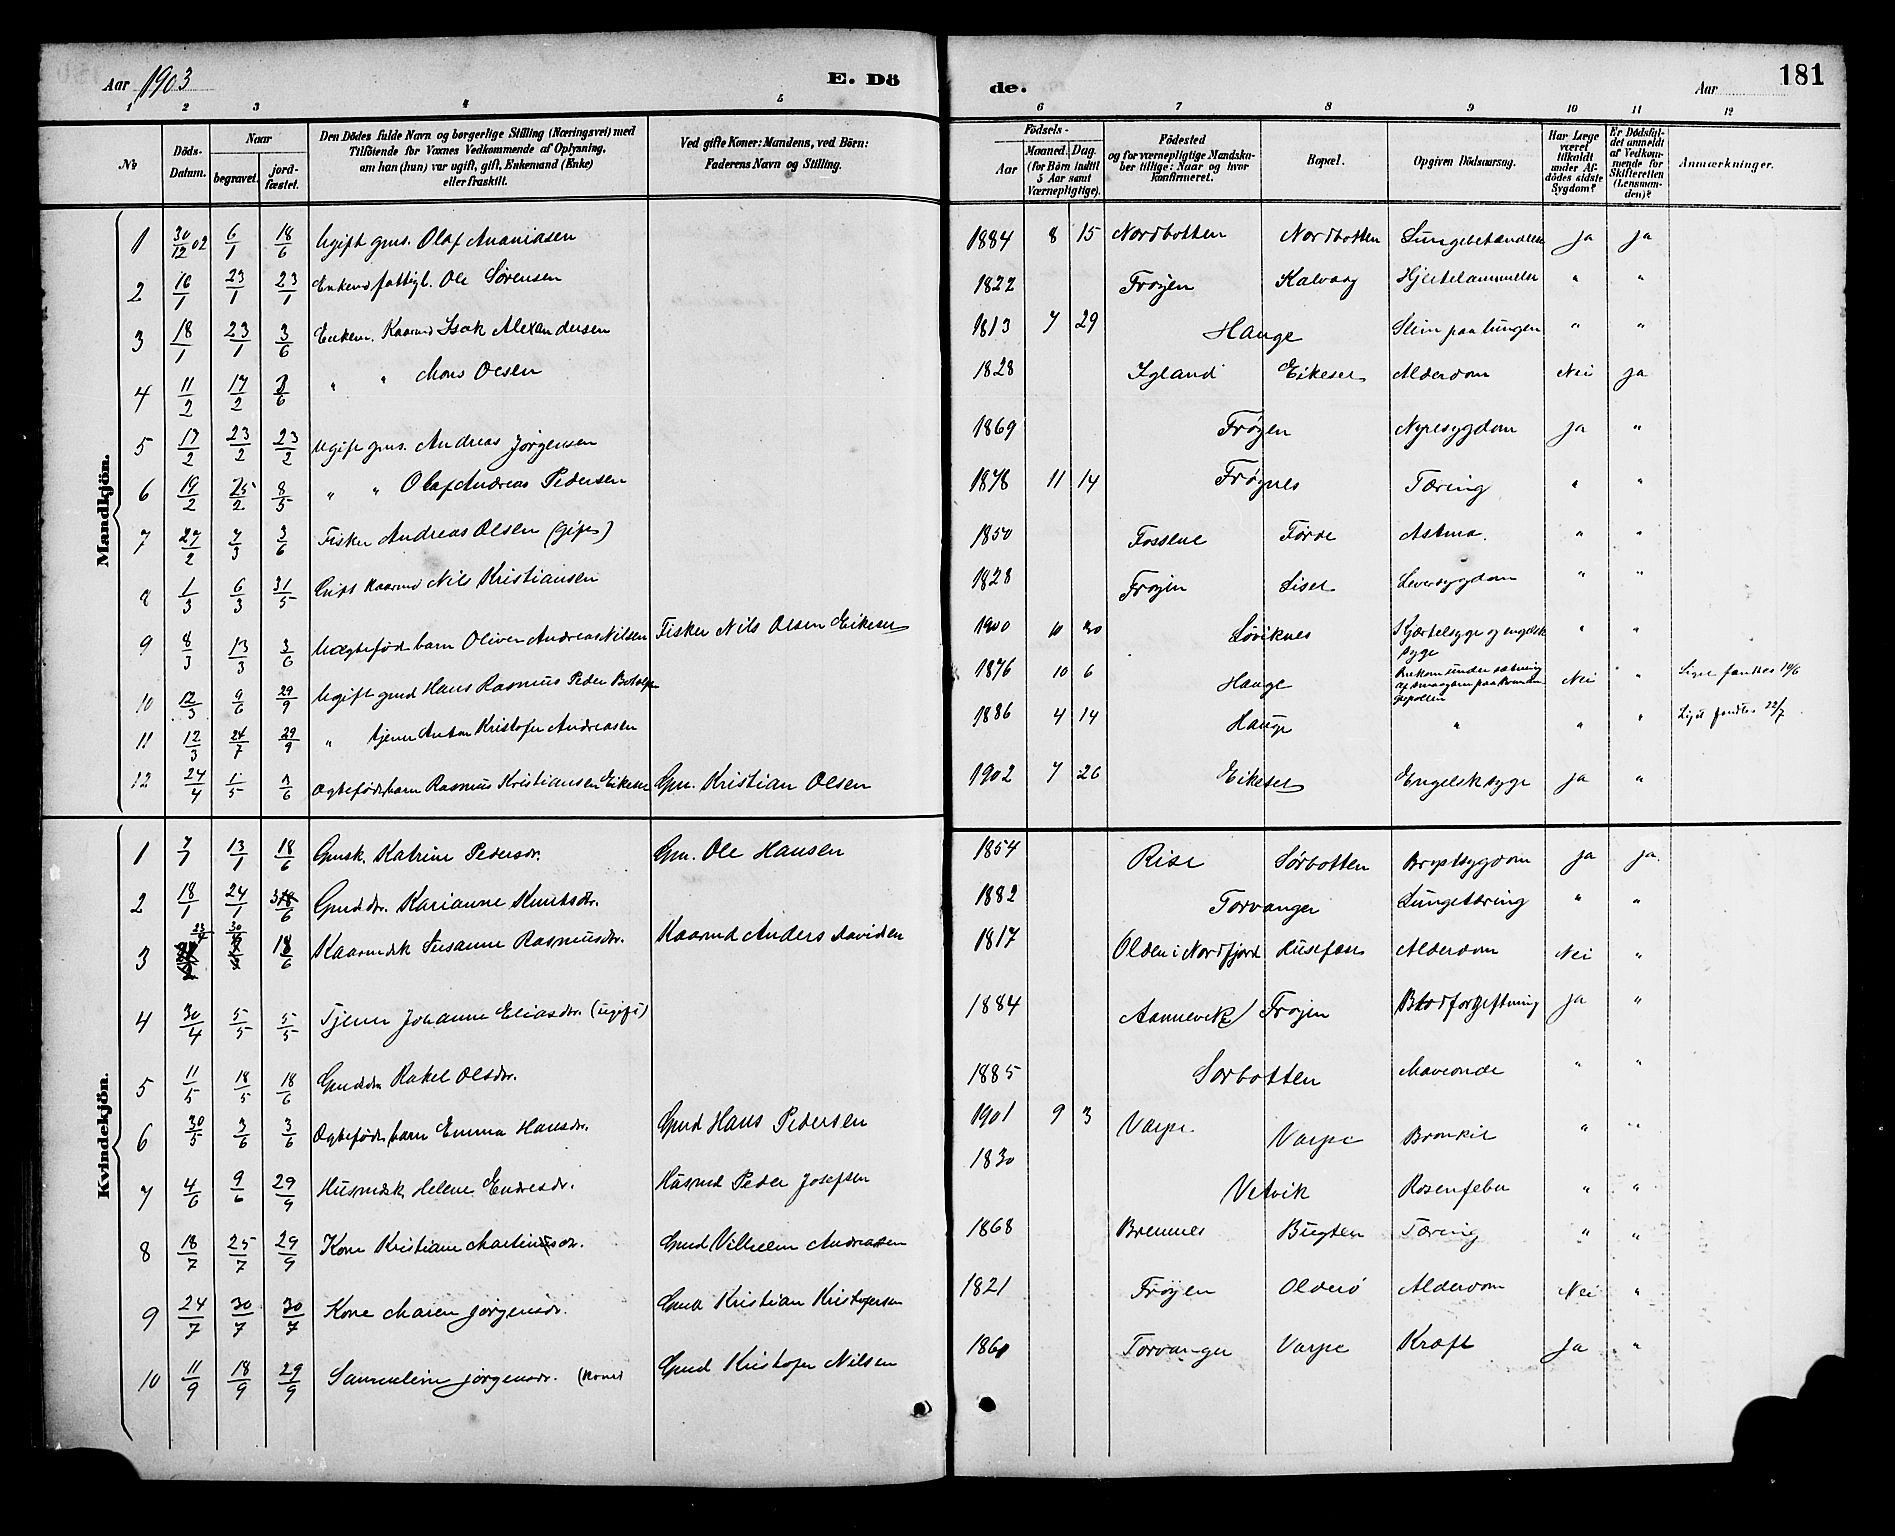 Aar 1903 E. Dö de. Aar 181
1 2 3 4 5 6 7 8 9 10 11 12
No Döds-Datum. Naar begravet. jord-fæstet. Den Dödes fulde Navn og borgerlige Stilling (Næringsvei) med Tilföiende for Voxnes Vedkommende af Oplysning, om han (hun) var ugift, gift, Enkemand (Enke) eller fraskilt. Ved gifte Koner: Mandens, ved Börn: Faderens Navn og Stilling. Födsels- Aar Maaned. Dag. (for Börn indtil 5 Aar samt Værnepligtige). Födested og for værnepligtige Mandskaber tillige: Naar og hvor konfirmeret. Bopæl. Opgiven Dödsaarsag. Har Læge været tilkaldt under Afdödes sidste Sygdom? Er Dödsfaldet anmeldt af Vedkommende for Skifteretten (Lensmanden)? Anmærkninger.
Mandkjön.
1 30/12 02 6/1 18/6 Ugift gms. Olaf Ananiasen 1884 8 15 Nordbotten Nordbotten Lungebetændelse ja ja
2 16/1 23/1 23/1 Enkemd fattigl. Ole Sørensen 1822 Frøyen Kalvaag Hjertelammelse " "
3 18/1 23/1 3/6 Enkem. Kaarmd Isak Alexandersen 1813 7 29 Hauge Slim paa lungen " "
4 11/2 17/2 3/6 " " Mons Olsen 1828 Igland Eikeset Alderdom Nei ja
5 17/2 23/2 23/2 Ugift gms. Andreas Jørgensen 1869 Frøyen Nyresygdom ja "
6 19/2 25/2 8/5 " " Olaf Andreas Pedersen 1878 11 14 Frøynes Tæring " "
7 27/2 7/3 3/6 Fisker Andreas Olsen (gift) 1850 Fossene Førde Astma. " "
8 1/3 6/3 31/5 Gift Kaarmd Nils Kristiansen 1828 Frøyen Liset Leversygdom " "
9 8/3 13/3 3/6 Uægtefødt barn Oliver Andreas Nilsen Fisker Nils Olsen Eikeset 1900 10 30 Løviknes Kjertelsyge og engelsk syge " "
10 12/3 9/6 29/9 Ugift gmd Hans Rasmus Peder Botolfs 1876 10 6 Hauge Omkom under sætning af smaagarn paa Nei " Liget fandtes 10/6
11 12/3 24/7 29/9 " tjener Anton Kristofer Andreasen 1886 4 14 Hauge " " " Liget fandtes 22/7
12 24/4 1/5 3/6 Ægtefødt barn Rasmus Kristiansen Eikeset Gm. Kristian Olsen 1902 7 26 Eikeset Engelsk syge ja "
Kvindekjön.
1 7/1 13/1 18/6 Gmsk. Katrine Pedersdr. Gm. Ole Hansen 1854 Rise Sørbotten Brystsygdom ja ja
2 18/1 24/1 3/6 Gmd dr. Karianne Knutsdr. 1882 Torvanger Lungetæring " "
3 23/4 30/4 18/6 Kaarmdsk Susanne Rasmusdr. Kaarmd Anders Davidsen 1817 Olden i Nordfjord Husefæst Alderdom Nei "
4 30/4 5/5 5/5 Tjener Johanne Eliasdr. (ugift) 1884 Aannevik Frøyen Blodforgiftning ja "
5 11/5 18/5 18/6 Gmd dr. Rakel Olsdr. 1885 Sørbotten Maveonde " "
6 30/5 3/6 3/6 Ægtefødt barn Emma Hansdr. Gmd Hans Pedersen 1901 9 3 Varpe Varpe Bronkit " "
7 4/6 9/6 29/9 Husmdsk Helene Endresdr. Husmd Peder Josefsen 1830 Vetvik Rosenfeber " "
8 18/7 25/7 29/9 Kone Kristiane Martinsdr. Gmd Vilhelm Andreassen 1868 Bremnes Bugten Tæring " "
9 24/7 30/7 30/7 Kone Maren Jørgensdr. Gmd Kristian Kristofersen 1821 Frøyen Olderø Alderdom Nei "
10 11/9 18/9 29/9 Samueline Jørgensdr. (Kone) Gmd Kristofer Nilsen 1861 Torvanger Varpe Kræft ja "